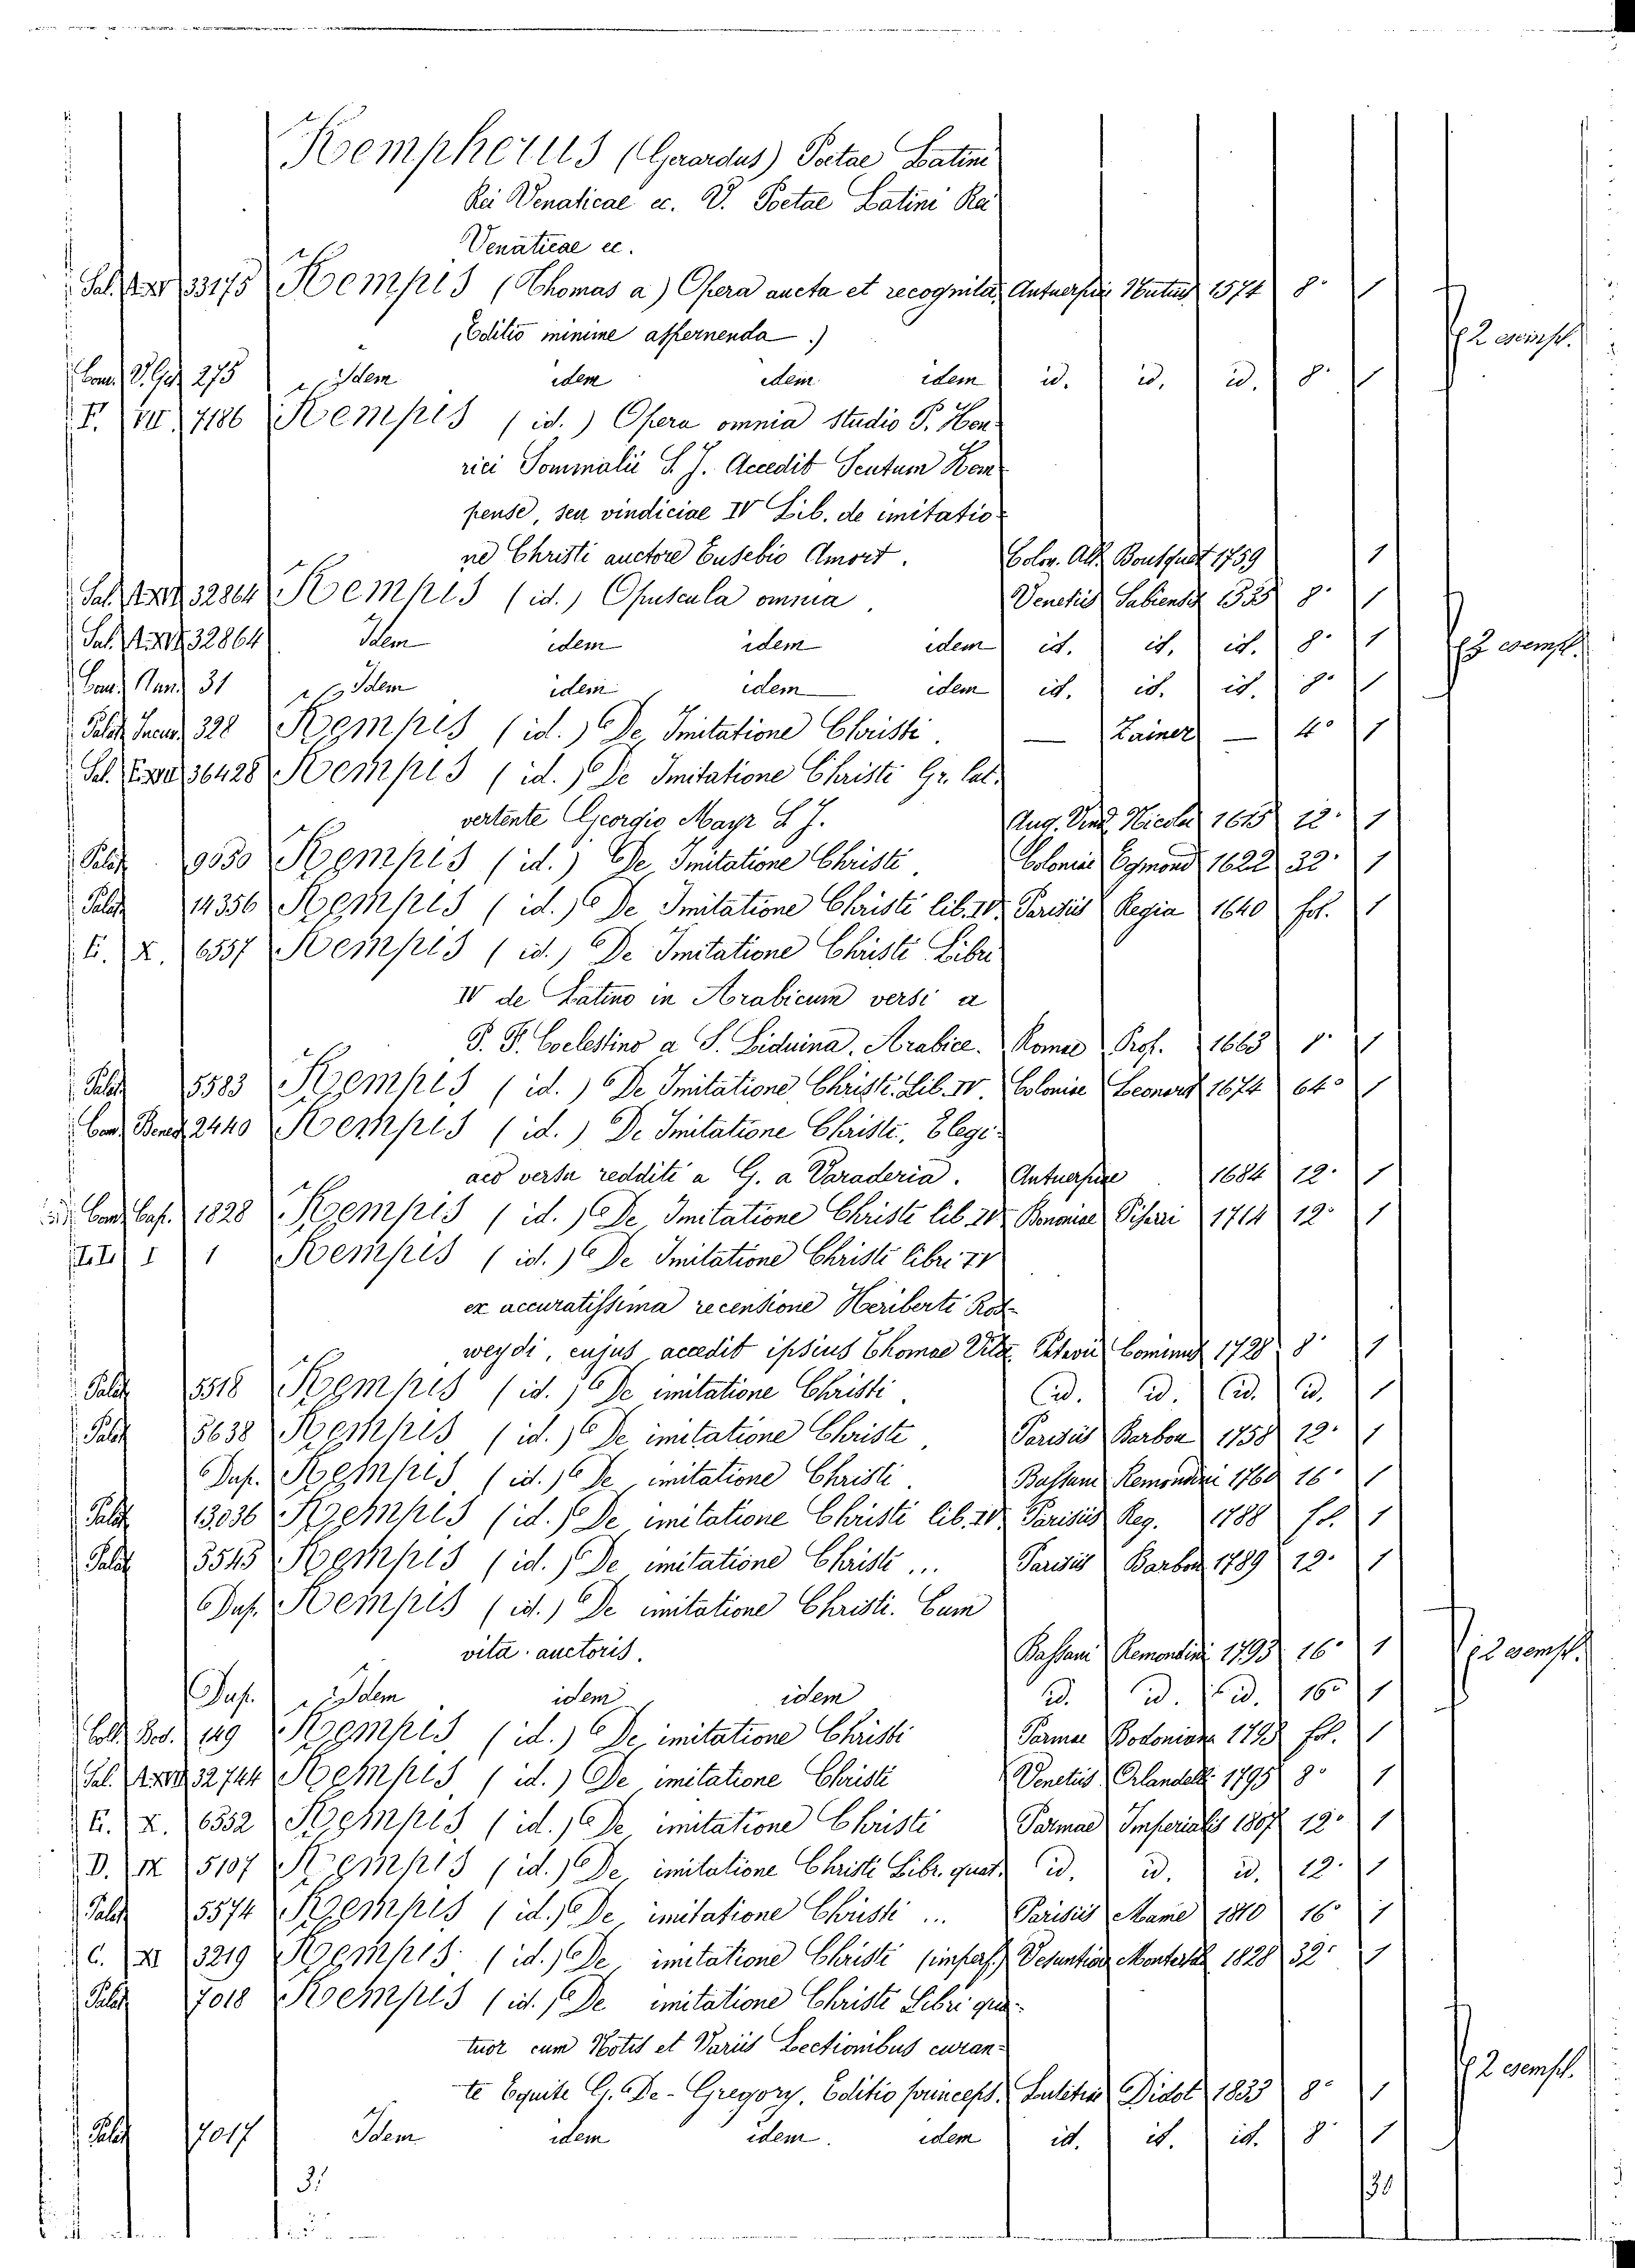 Kempherus (Gerardus) Poetae Latini
Rei Venaticae ec. V. Poetae Latini Rei
Venaticae ec.
33175 Kempis (Thomas a) Opera aucta et recognita, Antuerpiae Nutius 1574 8° 1
(Editio minime aspernenda.) 2 esempl.
275 Idem idem idem idem id. id. id. 8° 1
F. VII 7186 Kempis (id.) Opera omnia studio P. Hen-
rici Sommalii S. J. Accedit Scutum Kem-
pense, seu vindiciae IV Lib. de imitatio-
ne Christi auctore Eusebio Amort. Colon. All. Bousquet 1759 1
32864 Kempis (id.) Opuscula omnia. Venetiis Sabiensis 1535 8° 1
32864 Idem idem idem idem id. id. id. 8° 1 3 esempl.
31 Idem idem idem idem id. id. id. 8° 1
Palat. Incun. 328 Kempis (id.) De Imitatione Christi. — Zainer — 4° 1
36428 Kempis (id.) De Imitatione Christi Gr. lat.
vertente Georgio Mayr S. J. Aug. Vind. Nicolai 1615 12° 1
Palat. 9050 Kempis (id.) De Imitatione Christi. Coloniae Egmond 1622 32° 1
Palat. 14356 Kempis (id.) De Imitatione Christi lib. IV. Parisiis Regia 1640 fol. 1
E. X. 6557 Kempis (id.) De Imitatione Christi Libri
IV de Latino in Arabicum versi a
P. F. Coelestino a S. Liduina. Arabice. Romae Prof. 1663 8° 1
Palat. 5583 Kempis (id.) De Imitatione Christi. Lib. IV. Coloniae Leonard 1674 64° 1
Con. Bened. 2440 Kempis (id.) De Imitatione Christi, Elegi-
aco versu redditi a G. a Varaderia. Antuerpiae 1684 12° 1
Con. Cap. 1828 Kempis (id.) De Imitatione Christi lib. IV. Bononiae Pisarri 1714 12° 1
I 1 Kempis (id.) De Imitatione Christi libri IV
ex accuratissima recensione Heriberti Ros-
weydi, cujus accedit ipsius Thomae Vita. Patavii Cominus 1728 8° 1
Palat. 5518 Kempis (id.) De imitatione Christi. id. id. id. id. 1
Palat. 5638 Kempis (id.) De imitatione Christi. Parisiis Barbou 1758 12° 1
Dup. Kempis (id.) De imitatione Christi. Bassani Remondini 1760 16° 1
Palat. 13036 Kempis (id.) De imitatione Christi lib. IV. Parisiis Reg. 1788 fol. 1
Palat. 5545 Kempis (id.) De imitatione Christi... Parisiis Barbou 1789 12° 1
Dup. Kempis (id.) De imitatione Christi. Cum
vita auctoris. Bassani Remondini 1793 16° 1 2 esempl.
Dup. Idem idem idem id. id. id. 16° 1
Coll. Bod. 149 Kempis (id.) De imitatione Christi Parmae Bodonianis 1793 fol. 1
32744 Kempis (id.) De imitatione Christi Venetiis Orlandelli 1795 8° 1
E. X. 6552 Kempis (id.) De imitatione Christi Parmae Imperialis 1807 12° 1
D. IX 5107 Kempis (id.) De imitatione Christi Libr. quat. id. id. id. 12° 1
Palat. 5574 Kempis (id.) De imitatione Christi ... Parisiis Mame 1810 16° 1
C. XI 3219 Kempis (id.) De imitatione Christi (imperf.) Vesuntione 1828 32° 1
Palat. 7018 Kempis (id.) De imitatione Christi Libri qua-
tuor cum Notis et Variis Lectionibus curan-
te Equite G. De-Gregory. Editio princeps. Lutetiae Didot 1833 8° 1 2 esempl.
Palat. 7017 Idem idem idem. idem id. id. id. 8° 1